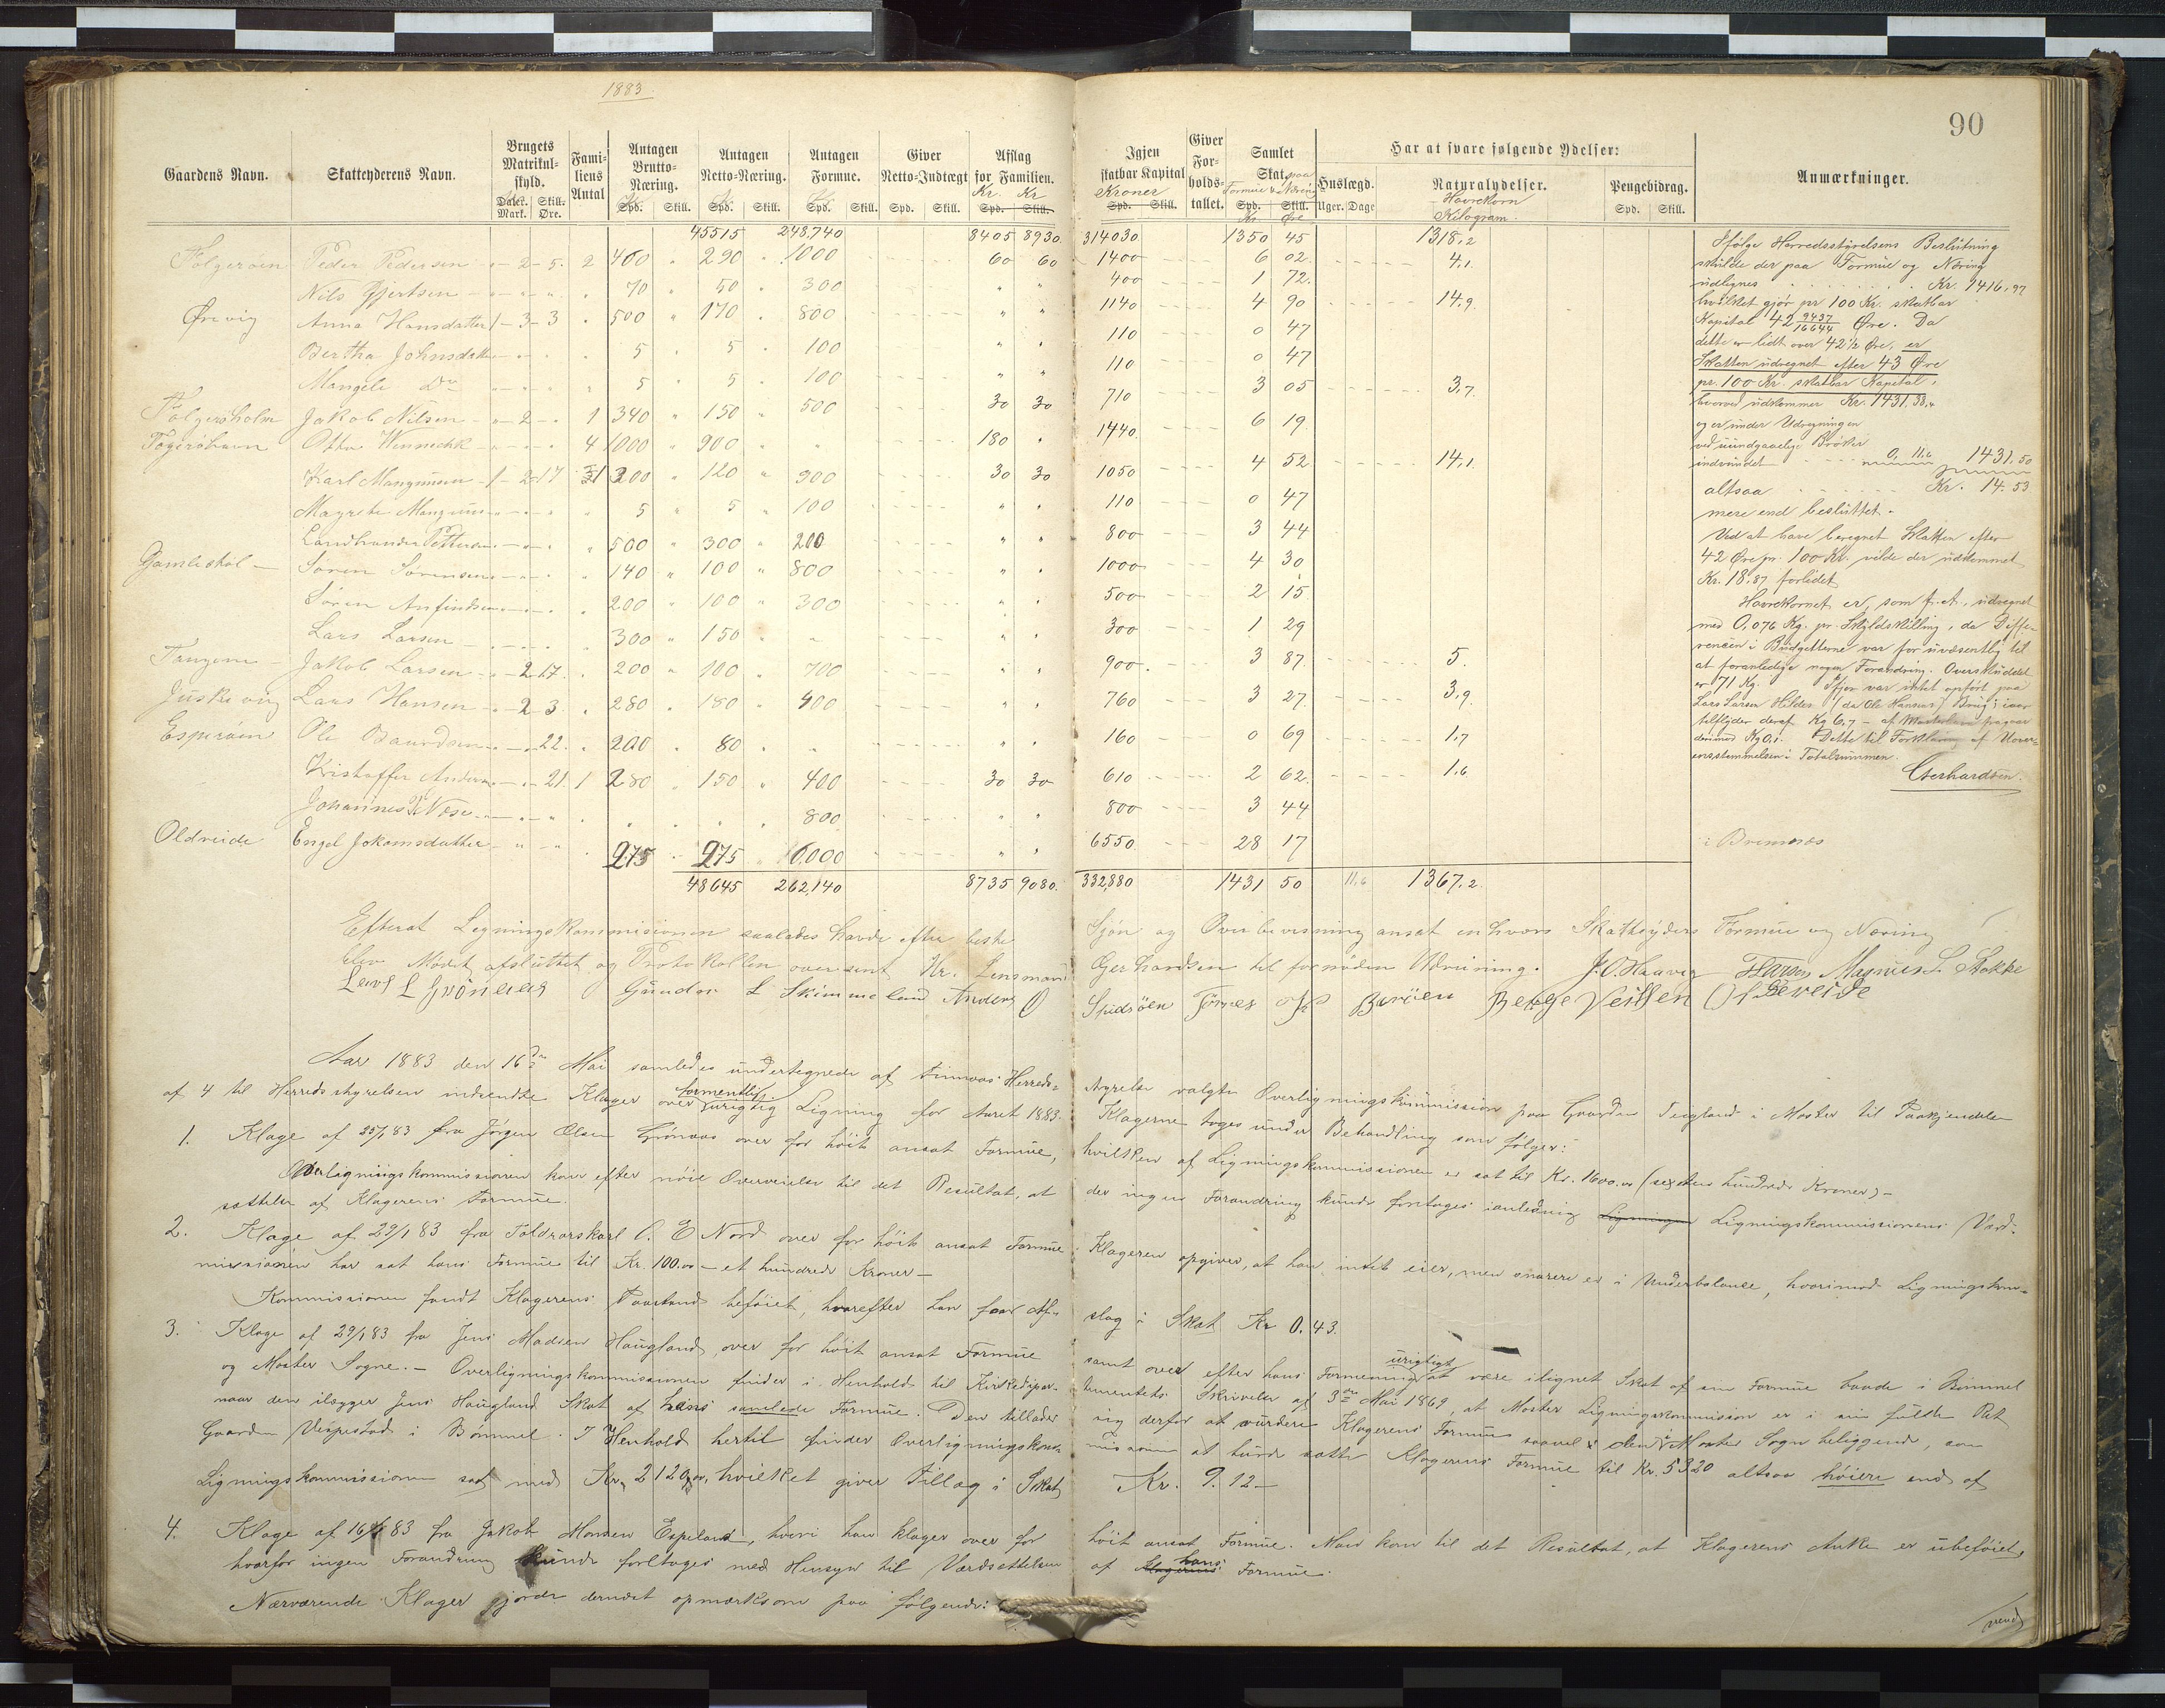 1883
90
Gaardens Navn. Skatteyderens Navn. Brugets Matrikul-skyld. Daler. Mark. Skill. Øre. Familiens Antal Antagen Brutto-Næring. Spd. Skill. Antagen Netto-Næring. Spd. Skill. Antagen Formue. Spd. Skill. Giver Netto-Indtægt Spd. Skill. Afslag for Familien. Kr Kr Spd. Skill. Igjen skatbar Kapital Kroner Spd. Skill. Giver Forholdstallet. Samlet Skat. paa Formue & Næring Spd. Skill. Kr Øre Har at svare følgende Ydelser: Huslægd. Uger. Dage Naturalydelser. Havrekorn Kilogram. Pengebidrag. Spd. Skill. Anmærkninger.
45515 248.740 8405 8930 314030 1350 45 1318,2
Folgerøen Peder Pedersen - 2 - 5. 2 400 290 1000 60 60 1400 6 02 4,1
Nils Gjertsen 70 50 300 400 1 72
Ørevig Anna Hansdatter 1 - 3 - 3 500 170 800 1140 4 90 14,9
Bertha Johnsdatter 5 5 100 110 0 47
Mangele Do 5 5 100 110 0 47
Folgerøholm Jakob Nilsen - 2 - 1 340 150 500 30 30 710 3 05 3,7
Folgerøhavn Otto Wennechk 4 1000 900 180 1440 6 19
Karl Mangnusen 1 - 2 - 17 1 300 120 900 30 30 1050 4 52 14,1
Magrete Mangnus 5 5 100 110 0 47
Landhandler Pettersen 500 300 200 800 3 44
Gamlestøl Søren Sørensen 140 100 800 1000 4 30
Søren Anfindsen 200 100 300 500 2 15
Lars Larsen 300 150 300 1 29
Tangene Jakob Larsen - 2 - 17 200 100 700 900 3 87 5.
Juskevig Lars Hansen - 2 3 280 180 400 760 3 27 3,9
Esperøen Ole Baardsen 22. 200 80 160 0 69 1,7
Kristoffer Andersen 21. 1 280 150 400 30 30 610 2 62 1,6
Johannes P. Næse 800 800 3 44
Oldereide Engel Jokomsdatter 275 275 6000 6550 28 17 i Bremnæs
48645 262,140 8735 9080 332,880 1431 50 11,6 1367,2
Ifølge Herredsstyrelsens Beslutning
skulde der paa Formue og Næring
udlignes Kr. 1416,97
hvilket gjør pr 100 Kr. skatbar
Kapital 42 9437/16644 Øre. Da
dette er lidt over 42½ Øre, er
Skatten udregnet efter 43 Øre
pr. 100 Kr. skatbar Kapital,
hvorved udkommer Kr. 1431,38,4
og er under Udregningen
ved uundgaaelige Brøker
indvundet 0,11,6 1431,50
altsaa Kr. 14.53
mere end besluttet.
Ved at have beregnet Skatten efter
42 Øre pr. 100 Kr. vilde der udkommet
Kr. 18.87 forlidet
Havrekornet er, som f. A., udregnet
med 0,076 Kg. pr. Skyldskilling, da Diffe-
rensen i Budgetterne var for uvæsentlig til
at foranledige nogen Forandring. Overskuddet
er 71 Kg. Ifjor var intet opført paa
Lars Larsen Hilder (da Ole Hansens) Brug; iaar
tilflyder deraf Kg 6,7 - af
derimod Kg 0,1. Dette til Forklaring af Uover-
ensstemmelsen i Totalsummen.
Gerhardsen.
Efterat Ligningskommisionen saaledes havde efter beste Sjøn og Overbevisning ansat enhvers Skatteyders Formue og Næring
blev Mødet afsluttet og Protokollen oversent Hr. Lensmand Gerhardsen til fornøden Udreining. J. O. Haavig Magnus S. Stokke
Gunder L Skimmeland Anders O Spidsøen Tørres Børøen Berge Oldereide
Aar 1883 den 16de Mai samledes undertegnede af Finnaas Herreds- styrelse valgte Overligningskommission paa Gaarden Teigland i Moster til Paakjendelse
af 4 til Herredsstyrelsen indsendte Klager over formentlig urigtig Ligning for Aaret 1883. Klagerne toges under Behandling som følger:
1. Klage af 25/1 83 fra Jørgen Olsen Grønaas over for høit ansat Formue, hvilken af Ligningskommissionen er sat til Kr. 1600.00 (sexten hundrede Kroner) -
Overligningskommissionen kom efter nøie Overveielse til det Resultat, at der ingen Forandring kunde foretages ianledning Ligningskommissionens Værd-
sættelse af Klagerens Formue.
2. Klage af 29/1 83 fra Foldrørskarl O. E Nord over for høit ansat Formue. Klageren opgiver, at han intet eier, men snarere er i Underbalance, hvorimod Ligningskom-
missionen har sat hans Formue til Kr. 100.00 - et hundrede Kroner -
Kommissionen fandt Klagerens Paastand beføiet, hvorefter han faar Af- slag i Skat Kr 0.43.
3. Klage af 29/1 83 fra Jens Madsen Haugland, over for høit ansat Formue samt over efter hans Formening urigtigt at være ilignet Skat af sin Formue baade i Bømmel
og Moster Sogne. - Overligningskommissionen finder i Henhold til Kirkedepar- tementets Skrivelse af 3die Mai 1869, at Moster Ligningskommission er i sin fulde Ret
naar den ilægger Jens Haugland Skat af hans samlede Formue. Den tillader sig derfor at vurdere Klagerens Formue saavel den i Moster Sogn beliggende, som
Gaarden Vespestad i Bømmel. I Henhold hertil finder Overligningskom- missionen at burde sætte Klagerens Formue til Kr. 5320 altsaa høiere end af
Ligningskommissionen sat med Kr. 2120,00, hvilket giver Tillæg i Skat Kr. 9.12 -
4. Klage af 16/1 83 fra Jakob Monsen Espeland, hvori han klager over for høit ansat Formue. Man kom til det Resultat, at Klagerens Anke er ubeføiet,
hvorfor ingen Forandring kunde foretages med Hensyn til Værdsættelsen af hans Formue.
Nærværende Klager gjorde derudat opmærksom paa følgende:
vend